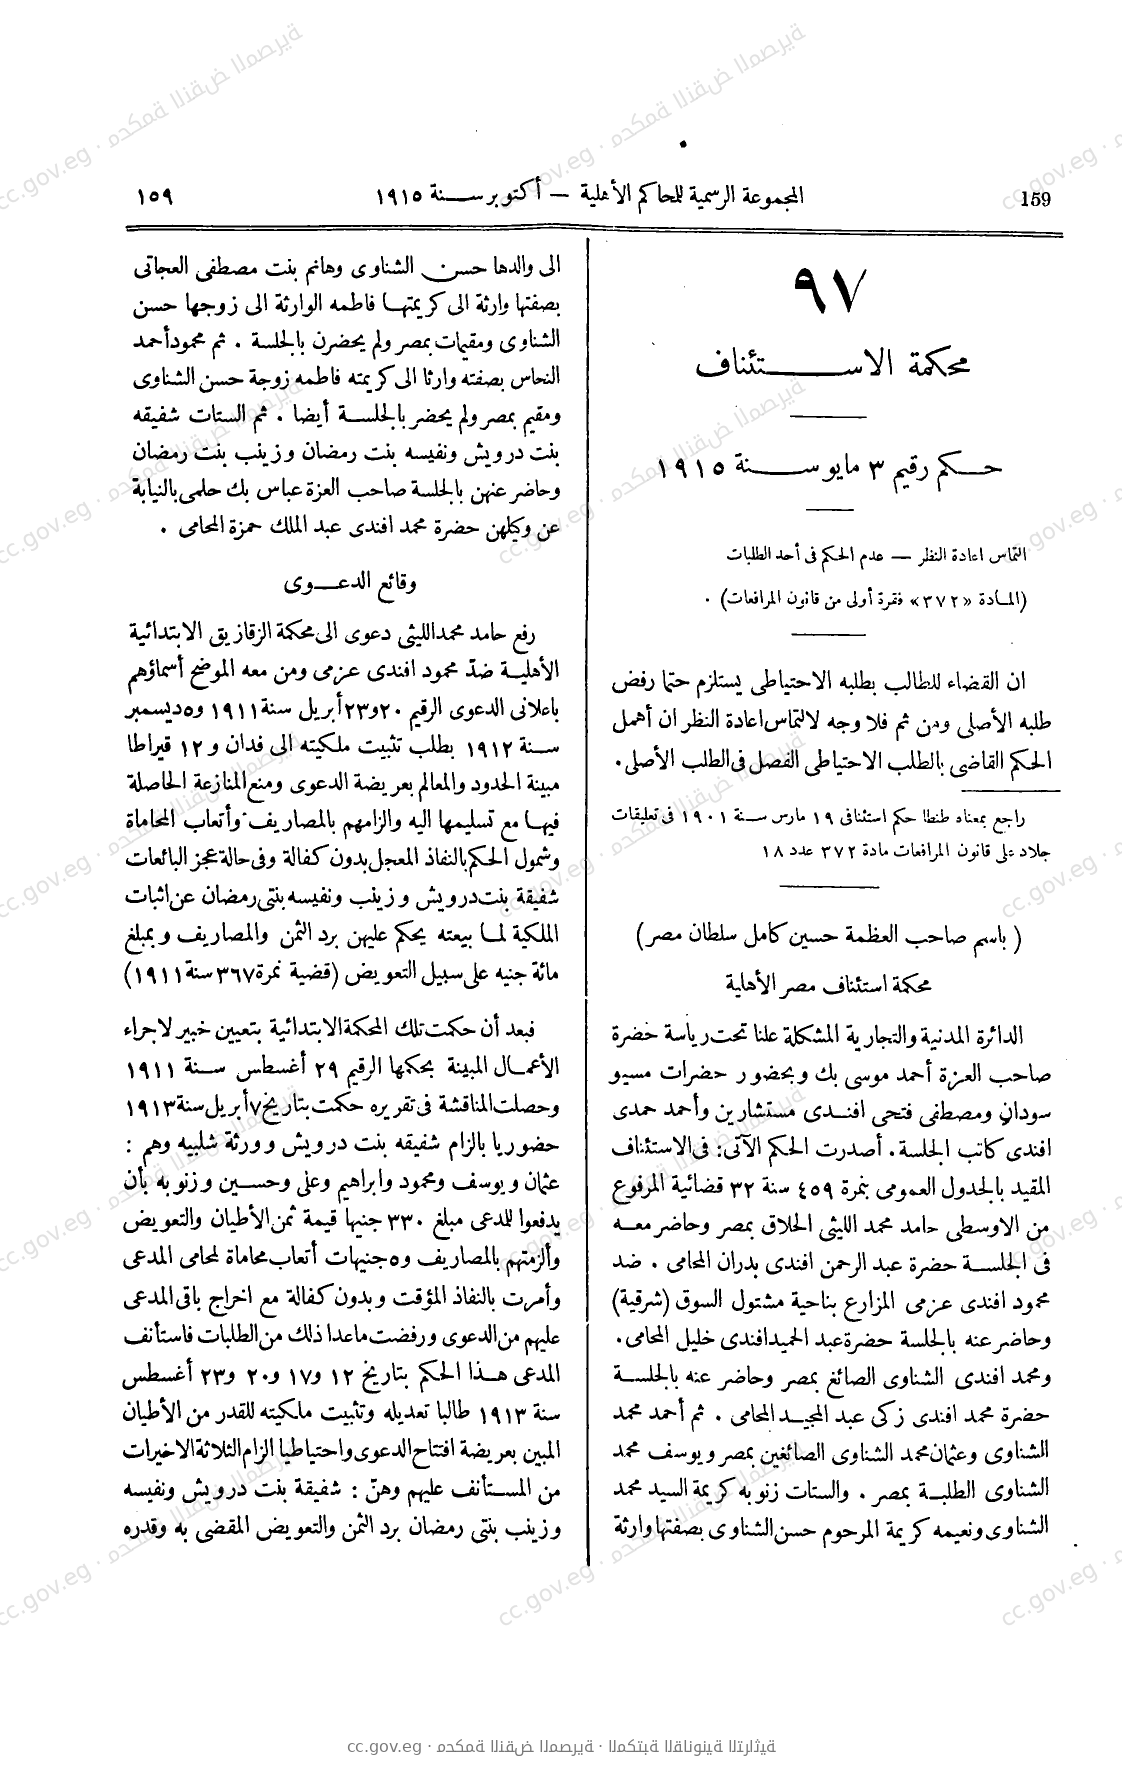 159
المجموعة الرسمية للمحاكم الأهلية — أكتوبر سنة ١٩١٥
١٥٩
٩٧
محكمة الاستئناف
حكم رقيم ٣ مايو سنة ١٩١٥
التماس اعادة النظر — عدم الحكم فى أحد الطلبات
(المادة «٣٧٢» فقرة أولى من قانون المرافعات) .
ان القضاء للطالب بطلبه الاحتياطى يستلزم حتما رفض
طلبه الأصلى ومن ثم فلا وجه لالتماس اعادة النظر ان أهمل
الحكم القاضى بالطلب الاحتياطى الفصل فى الطلب الأصلى.
راجع بمعناه طنطا حكم استئنافى ١٩ مارس سنة ١٩٠١ فى تعليقات
جلاد على قانون المرافعات مادة ٣٧٢ عدد ١٨
( باسم صاحب العظمة حسين كامل سلطان مصر )
محكمة استئناف مصر الأهلية
الدائرة المدنية والتجارية المشكلة علنا تحت رياسة حضرة
صاحب العزة أحمد موسى بك وبحضور حضرات مسيو
سودان ومصطفى فتحى افندى مستشارين وأحمد حمدى
افندى كاتب الجلسة. أصدرت الحكم الآتى: فى الاستئناف
المقيد بالجدول العمومى بنمرة ٤٥٩ سنة ٣٢ قضائية المرفوع
من الاوسطى حامد محمد الليثى الحلاق بمصر وحاضر معه
فى الجلسة حضرة عبد الرحمن افندى بدران المحامى . ضد
محمود افندى عزمى المزارع بناحية مشتول السوق (شرقية)
وحاضر عنه بالجلسة حضرة عبد الحميد افندى خليل المحامى.
ومحمد افندى الشناوى الصائغ بمصر وحاضر عنه بالجلسة
حضرة محمد افندى زكى عبد المجيد المحامى . ثم أحمد محمد
الشناوى وعثمان محمد الشناوى الصائغين بمصر ويوسف محمد
الشناوى الطلبة بمصر . والستات زنوبه كريمة السيد محمد
الشناوى ونعيمه كريمة المرحوم حسن الشناوى بصفتها وارثة
الى والدها حسن الشناوى وهانم بنت مصطفى العجاتى
بصفتها وارثة الى كريمتها فاطمه الوارثة الى زوجها حسن
الشناوى ومقيمات بمصر ولم يحضرن بالجلسة . ثم محمود أحمد
النحاس بصفته وارثا الى كريمته فاطمه زوجة حسن الشناوى
ومقيم بمصر ولم يحضر بالجلسة أيضا . ثم الستات شفيقه
بنت درويش ونفيسه بنت رمضان وزينب بنت رمضان
وحاضر عنهن بالجلسة صاحب العزة عباس بك حلمى بالنيابة
عن وكيلهن حضرة محمد افندى عبد الملك حمزة المحامى .
وقائع الدعوى
رفع حامد محمد الليثى دعوى الى محكمة الزقازيق الابتدائية
الأهلية ضدّ محمود افندى عزمى ومن معه الموضح أسماؤهم
باعلانى الدعوى الرقيم ٢٠و٢٣أبريل سنة ١٩١١ و٥ديسمبر
سنة ١٩١٢ بطلب تثبيت ملكيته الى فدان و ١٢ قيراطا
مبينة الحدود والمعالم بعريضة الدعوى ومنع المنازعة الحاصلة
فيها مع تسليمها اليه والزامهم بالمصاريف وأتعاب المحاماة
وشمول الحكم بالنفاذ المعجل بدون كفالة وفى حالة عجز البائعات
شفيقة بنت درويش وزينب ونفيسه بنتى رمضان عن اثبات
الملكية لما بيعته يحكم عليهن برد الثمن والمصاريف وبمبلغ
مائة جنيه على سبيل التعويض (قضية نمرة ٣٦٧ سنة ١٩١١)
فبعد أن حكمت تلك المحكمة الابتدائية بتعيين خبير لاجراء
الأعمال المبينة بحكمها الرقيم ٢٩ أغسطس سنة ١٩١١
وحصلت المناقشة فى تقريره حكمت بتاريخ ٧ أبريل سنة ١٩١٣
حضوريا بالزام شفيقه بنت درويش وورثة شلبيه وهم :
عثمان ويوسف ومحمود وابراهيم وعلى وحسين وزنوبه بأن
يدفعوا للمدعى مبلغ ٣٣٠ جنيها قيمة ثمن الأطيان والتعويض
وألزمتهم بالمصاريف و٥ جنيهات أتعاب محاماة لمحامى المدعى
وأمرت بالنفاذ المؤقت وبدون كفالة مع اخراج باقى المدعى
عليهم من الدعوى ورفضت ماعدا ذلك من الطلبات فاستأنف
المدعى هذا الحكم بتاريخ ١٢ و١٧ و٢٠ و٢٣ أغسطس
سنة ١٩١٣ طالبا تعديله وتثبيت ملكيته للقدر من الأطيان
المبين بعريضة افتتاح الدعوى واحتياطيا الزام الثلاثة الاخيرات
من المستأنف عليهم وهنّ : شفيقة بنت درويش ونفيسه
وزينب بنتى رمضان برد الثمن والتعويض المقضى به وقدره
cc.gov.eg · محكمة النقض المصرية · المكتبة القانونية التراثية